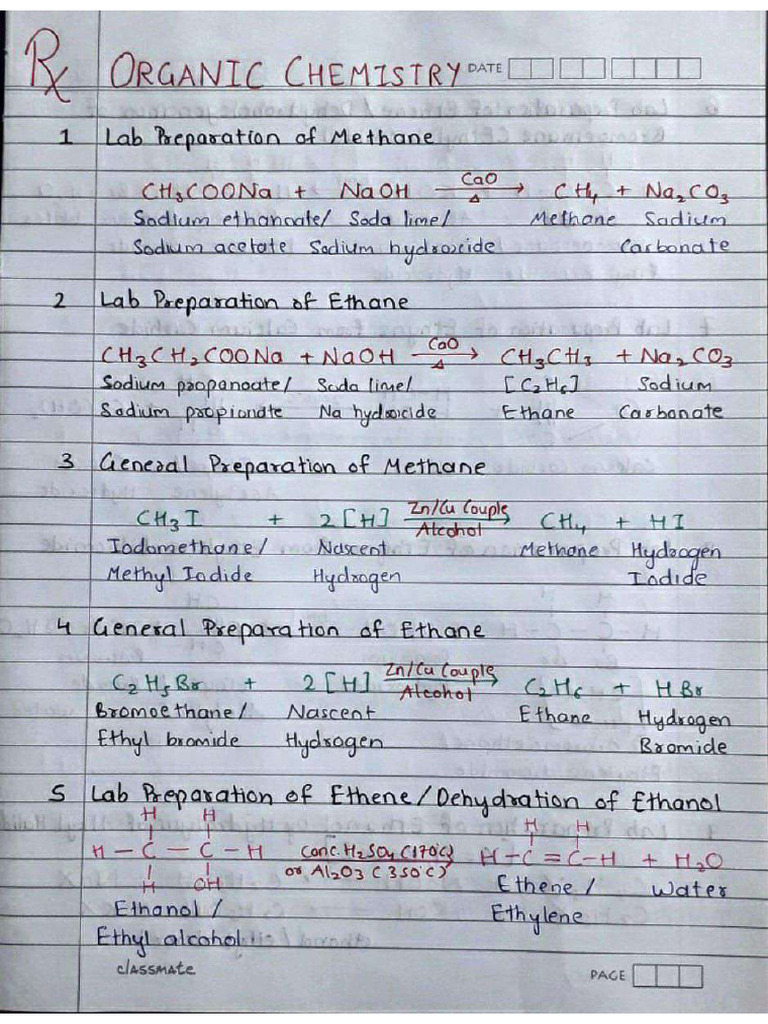 Rx ORGANIC CHEMISTRY DATE
1 Lab Preparation of Methane
CH₃COONa + NaOH —CaO/Δ→ CH₄ + Na₂CO₃
Sodium ethanoate/ Soda lime/ Methane Sodium
Sodium acetate Sodium hydroxide Carbonate
2 Lab Preparation of Ethane
CH₃CH₂COONa + NaOH —CaO/Δ→ CH₃CH₃ + Na₂CO₃
Sodium propanoate/ Soda lime/ [C₂H₆] Sodium
Sodium propionate Na hydroxide Ethane Carbonate
3 General Preparation of Methane
CH₃I + 2[H] —Zn/Cu Couple/Alcohol→ CH₄ + HI
Iodomethane/ Nascent Methane Hydrogen
Methyl Iodide Hydrogen Iodide
4 General Preparation of Ethane
C₂H₅Br + 2[H] —Zn/Cu Couple/Alcohol→ C₂H₆ + HBr
Bromoethane/ Nascent Ethane Hydrogen
Ethyl bromide Hydrogen Bromide
5 Lab Preparation of Ethene/Dehydration of Ethanol
H H H H
H–C–C–H conc. H₂SO₄ (170°C) H–C=C–H + H₂O
H OH or Al₂O₃ (350°C) Ethene/ Water
Ethanol/ Ethylene
Ethyl alcohol
classmate PAGE